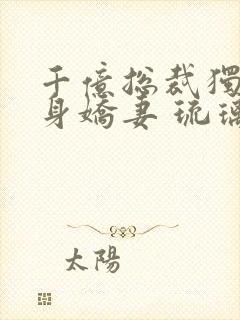 千億總裁獨
身嬌妻 琉璃
太陽